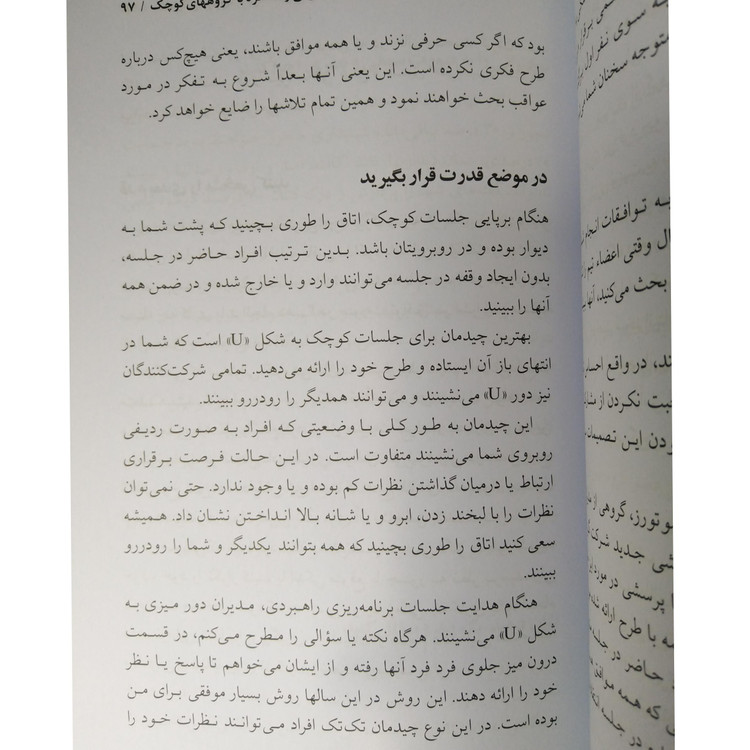 با گروههای کوچک / ۹۷
بود که اگر کسی حرفی نزند و یا همه موافق باشند، یعنی هیچ‌کس درباره
طرح فکری نکرده است. این یعنی آنها بعداً شروع به تفکر در مورد
عواقب بحث خواهند نمود و همین تمام تلاشها را ضایع خواهد کرد.
در موضع قدرت قرار بگیرید
هنگام برپایی جلسات کوچک، اتاق را طوری بچینید که پشت شما به
دیوار بوده و در روبرویتان باشد. بدین ترتیب افراد حاضر در جلسه،
بدون ایجاد وقفه در جلسه می‌توانند وارد و یا خارج شده و در ضمن همه
آنها را ببینید.
بهترین چیدمان برای جلسات کوچک به شکل «U» است که شما در
انتهای باز آن ایستاده و طرح خود را ارائه می‌دهید. تمامی شرکت‌کنندگان
نیز دور «U» می‌نشینند و می‌توانند همدیگر را رودررو ببینند.
این چیدمان به طور کلی با وضعیتی که افراد به صورت ردیفی
روبروی شما می‌نشینند متفاوت است. در این حالت فرصت برقراری
ارتباط یا درمیان گذاشتن نظرات کم بوده و یا وجود ندارد. حتی نمی‌توان
نظرات را با لبخند زدن، ابرو و یا شانه بالا انداختن نشان داد. همیشه
سعی کنید اتاق را طوری بچینید که همه بتوانند یکدیگر و شما را رودررو
ببینند.
هنگام هدایت جلسات برنامه‌ریزی راهبردی، مدیران دور میزی به
شکل «U» می‌نشینند. هرگاه نکته یا سؤالی را مطرح می‌کنم، در قسمت
درون میز جلوی فرد فرد آنها رفته و از ایشان می‌خواهم تا پاسخ یا نظر
خود را ارائه دهند. این روش در این سالها روش بسیار موفقی برای من
بوده است. در این نوع چیدمان تک‌تک افراد می‌توانند نظرات خود را
به سوی نفر اول
متوجه سخنان شما
به توافقات انجام
ال وقتی اعضاء تیم
بحث می‌کنید، آنها
ند، در واقع احساس
بت نکردن از
ردن این تصمیمات
وتورز، گروهی از
شی جدید شرکت
ا پرسشی در مورد
مه با طرح ارائه شده
حاضر در جلسه
که همه موافق
در جلسه